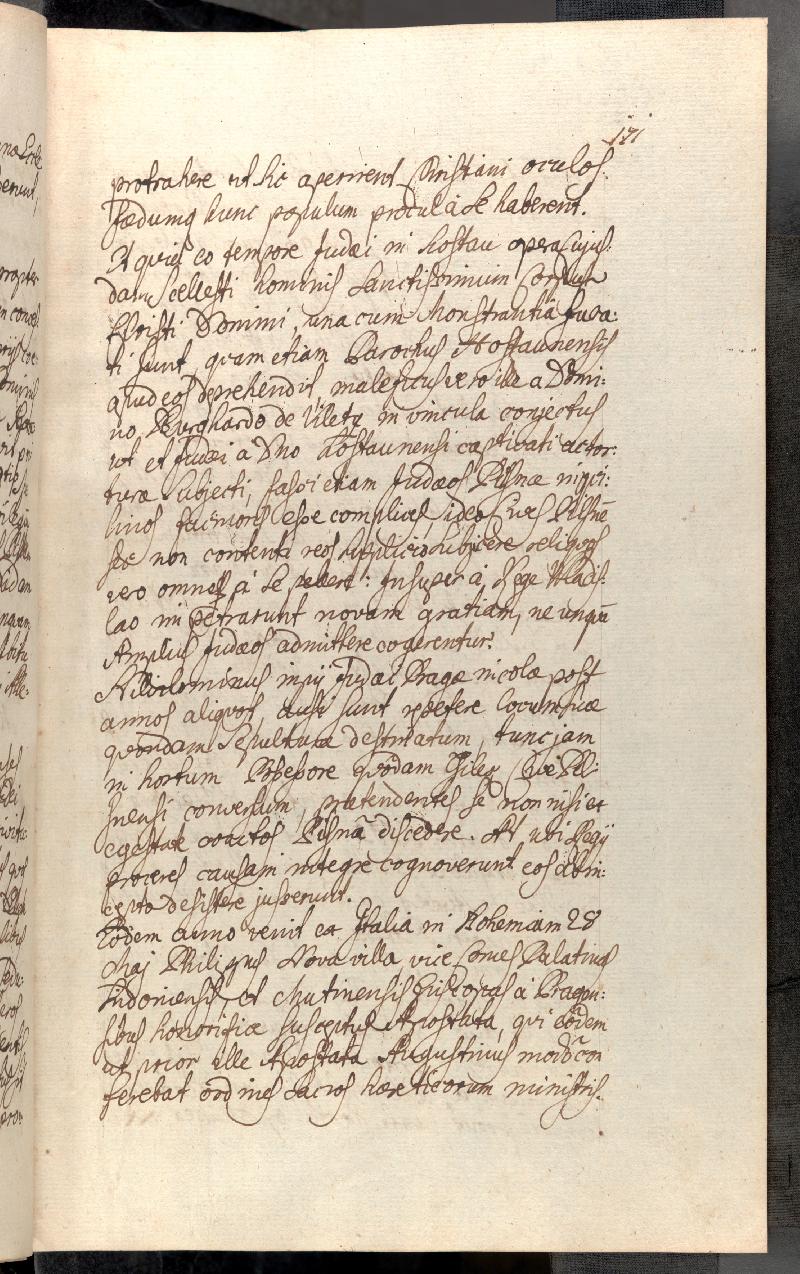 171
protrahere ut hic aperirent Christiani oculos
fædumq hunc populum procul à se haberent.
Et quia eo tempore Judæi in Hostau opera cujus:
dam scellesti hominis Sanctissimum Corpus
Christi Domini, una cum Monstrantia fura:
ti sunt, quam etiam Parochus Hostaunensis
a Judeos deprehendit, maleficus vero ille a Domi:
no Burghardo de in vincula conjectus
ut et Judæi a Dno Hostaunensi captivati ac tor:
turæ subjecti, fassi etiam Judæos Pilsnæ inqui:
linos facinoris esse complices ideo Cives Pilsnē
sės non contenti reos supplicio subjicere reliquos
vero omnes à se pellere: Insuper à Rege Wladis:
lao impetrarunt novam gratiam, ne unquā
Amplius Judæos admittere cogerentur.
Nihilominus impij Judæi Pragæ incolæ post
annos aliquot, ausi sunt repetere locum suæ
quondam Sepulturæ destinatum, tunc jam
in hortum Possessore quodam Cive Pil:
snensi conversum, prætendentes se non nisi ex
egestate coactos Pilsnā discedere. At ubi Regij
proceres causam integrè cognoverunt eos ab in:
cepto desistere jusserunt.
Eodem anno venit ex Italia in Bohemiam 28
Maj Philippus Nova villa vice Comes Palatinus
et Mutinensis Episcopus à Pragen:
sibus honorificæ susceptus Apostata, qui eodem
ut prior ille Apostata Augustinus modo con
ferebat ordines sacros hæreticorum ministris.